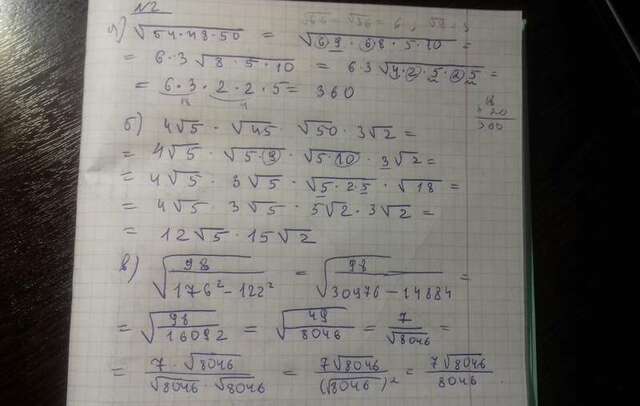 №2
а) √(54·48·50) = √(6·9·6·8·5·10) =
= 6·3 √(8·5·10) = 6·3 √(4·2·5·2·5) =
= 6·3·2·2·5 = 360
б) 4√5 · √45 · √50 · 3√2 =
= 4√5 · √(5·9) · √(5·10) · 3√2 =
= 4√5 · 3√5 · √(5·2·5) · √18 =
= 4√5 · 3√5 · 5√2 · 3√2 =
= 12√5 · 15√2
в) √(98/(176²-122²)) = √(98/(30976-14884)) =
= √(98/16092) = √(49/8046) = 7/√8046 =
= 7·√8046/(√8046·√8046) = 7√8046/(√8046)² = 7√8046/8046